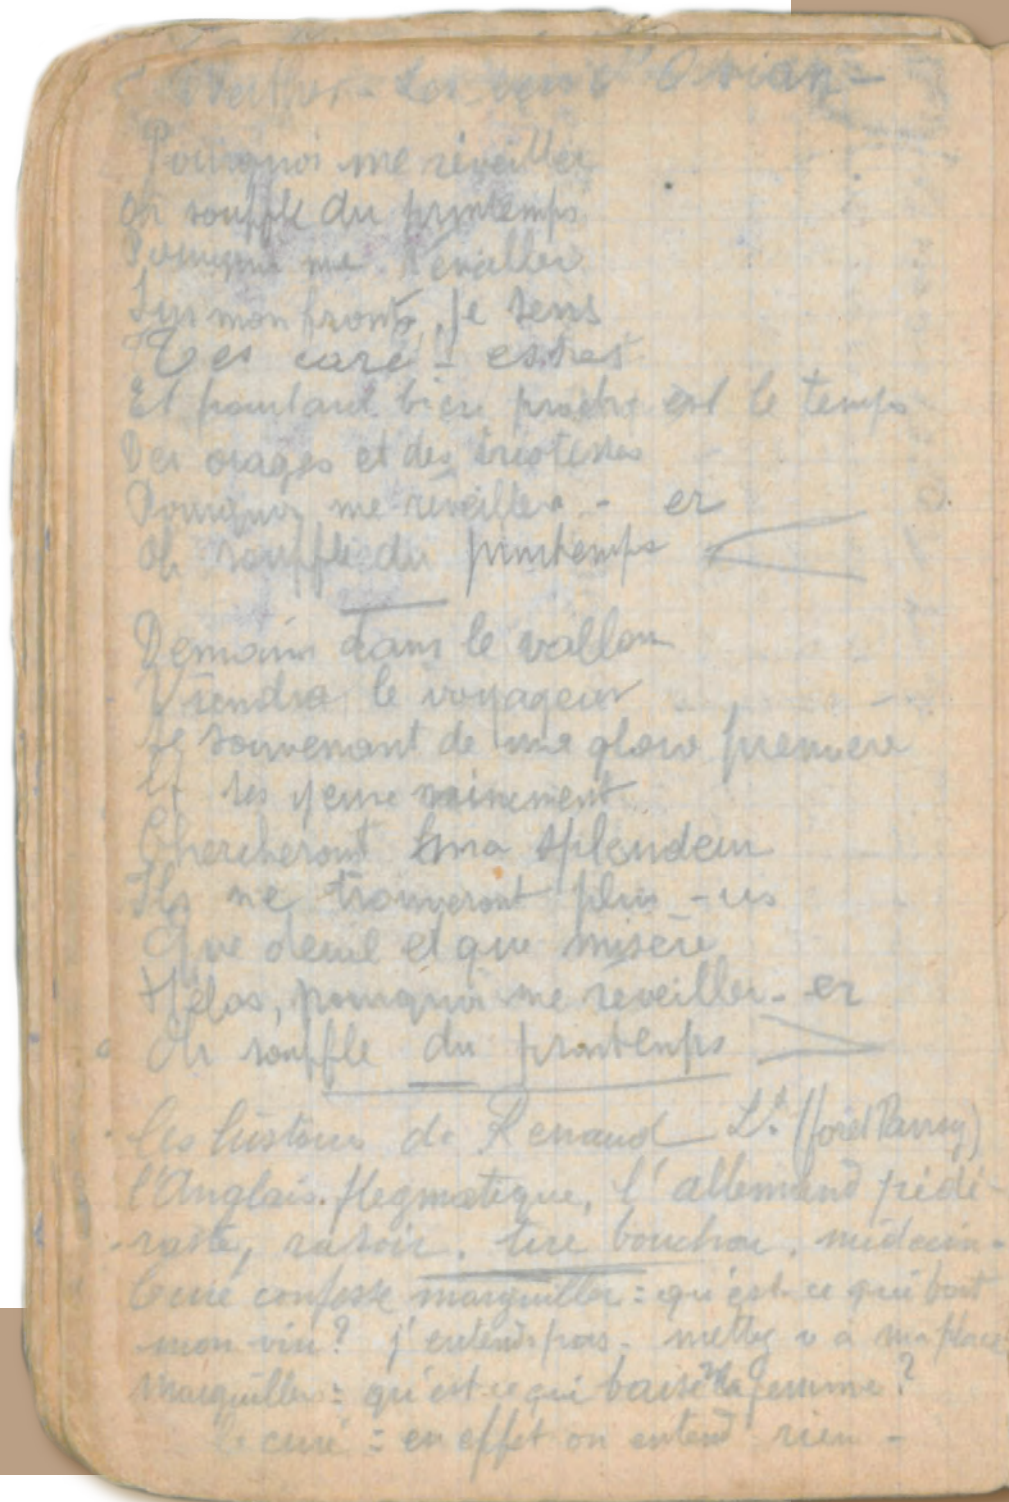 Werther - Les vers d'Ossian -
Pourquoi me réveiller
Oh souffle du printemps
Pourquoi me réveiller
Sur mon front, je sens
Tes care - esses
Et pourtant bien proche est le temps
Des orages et des tristesses
Pourquoi me réveiller - er
Oh souffle du printemps
Demain dans le vallon
Viendra le voyageur
Se souvenant de ma gloire première
Et ses yeux vainement
Chercheront ma splendeur
Ils ne trouveront plus - us
Que deuil et que misère
Hélas, pourquoi me reveiller - er
Oh souffle du printemps
les histoires de Renaud Lt. (forêt Parroy)
l'Anglais flegmatique, l'allemand pédé-
raste, rasoir. tire bouchon, médecin -
Curé confesse marguiller : qu'est-ce qui boit
mon vin ? j'entends pas - mettez v à ma place
Marguiller : qu'est-ce qui baise ma femme ?
le curé : en effet on entend rien -